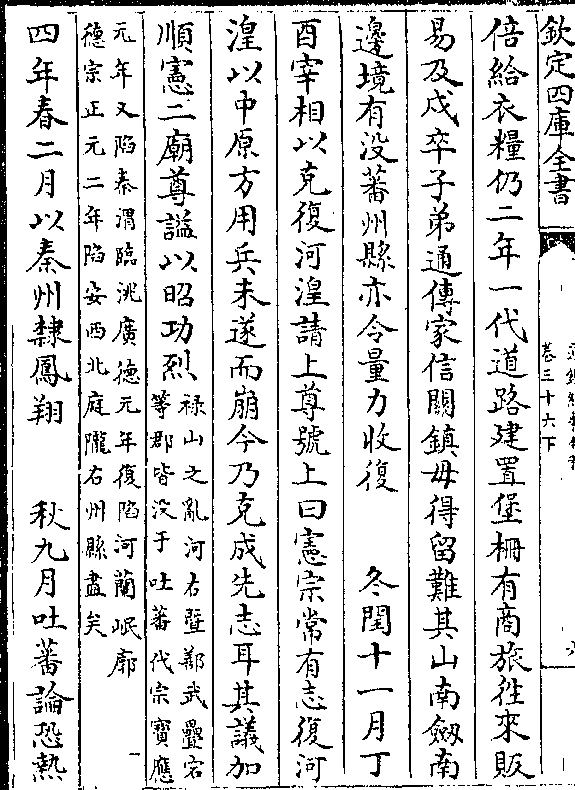 欽定四庫全書
卷三十六下
倍給衣糧仍二年一代道路建置堡柵有商旅往來販
易及戍卒子弟通傳家信關鎮毋得留難其山南劔南
邊境有没蕃州縣亦令量力收復　冬閏十一月丁
酉宰相以克復河湟請上尊號上曰憲宗常有志復河
湟以中原方用兵未遂而崩今乃克成先志耳其議加
順憲二廟尊諡以昭功烈
禄山之亂河右暨鄯武疊宕
等郡皆没于吐蕃代宗寶應
元年又陷秦渭臨洮廣德元年復陷河蘭岷廓
德宗正元二年陷安西北庭隴右州縣盡矣
四年春二月以秦州隸鳳翔　秋九月吐蕃論恐熱